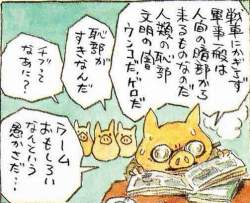 戦車にかぎらず
軍事一般は
人間の暗部から
来るものなのだ
人類の恥部
文明の闇
ウンコだ、ゲロだ
恥部が
すきなんだ
チブって
なあに?
ウーム
おもしろい
なんという
愚かさだ…